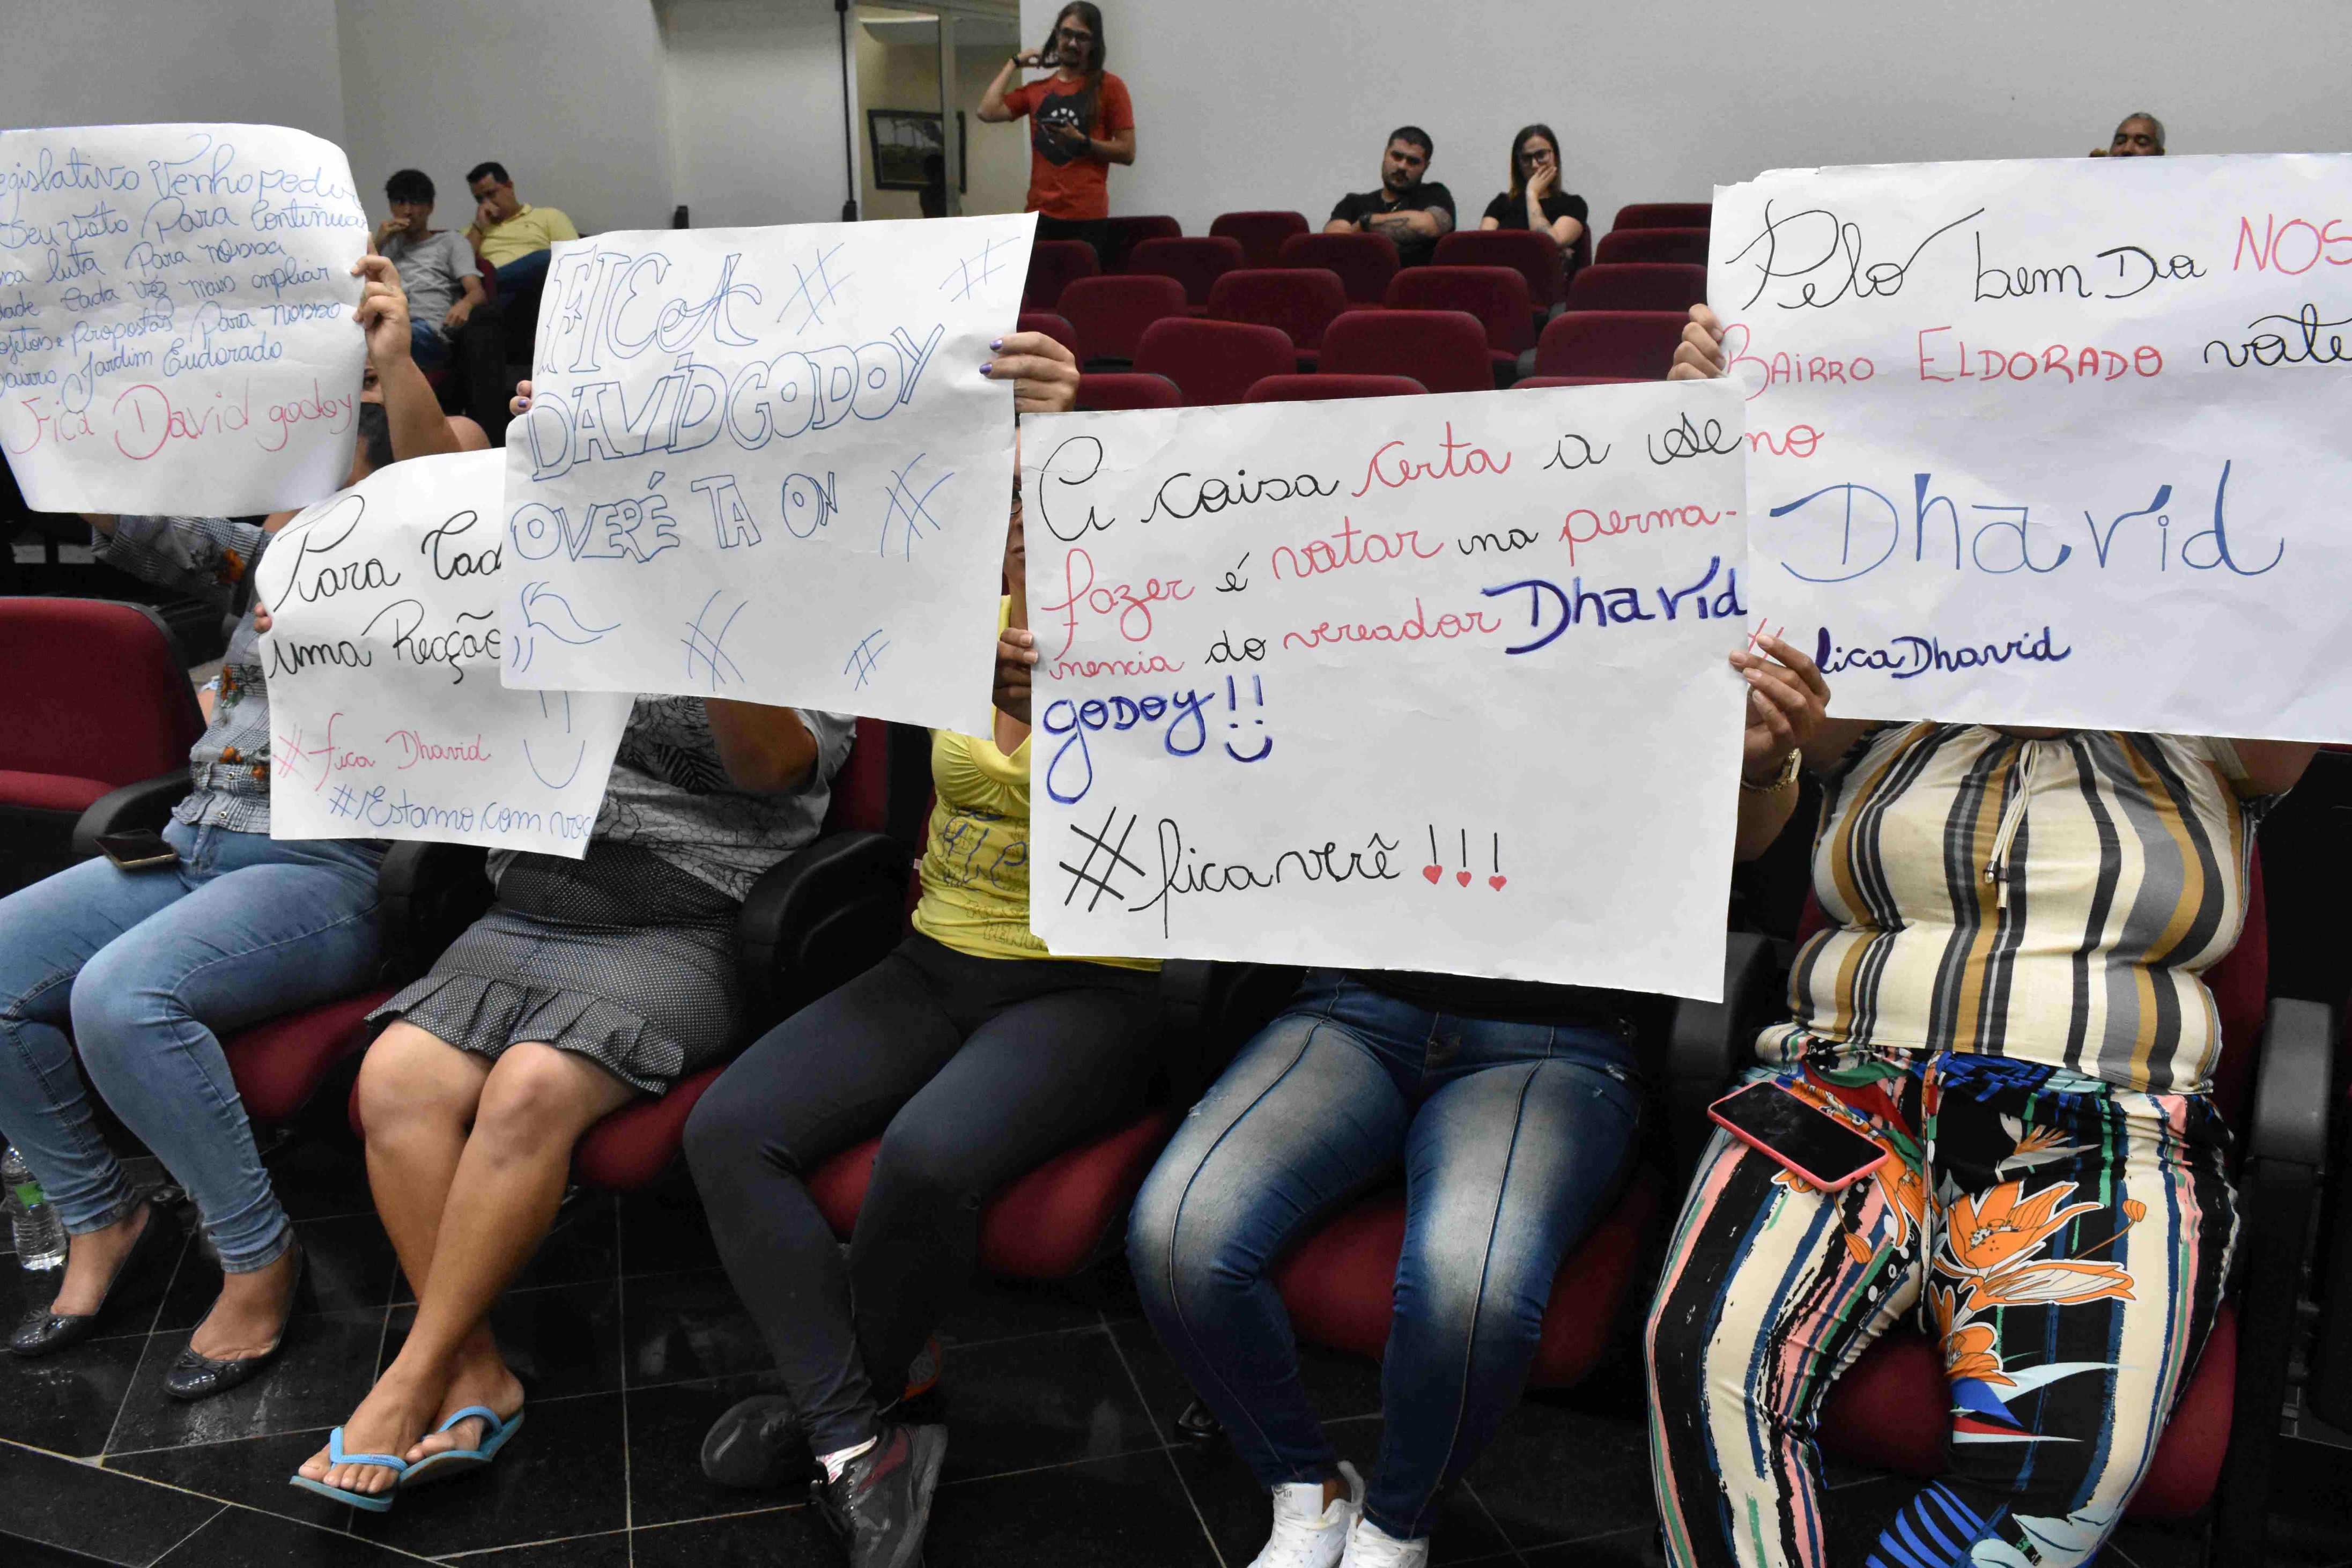 egislativo Venho pedir
Seu voto Para Continuar
ssa luta Para nossa
dade Cada vez mais ampliar
ojetos e Propostas Para nosso
Bairro Jardim Eudorado
Fica David godoy
Para Cad
uma Reação
#fica Dhavid
#Estamo com voc
FICA # #
DAVID GODOY
OVERÉ TA ON #
# #
A coisa certa a se
fazer é votar na perma-
nencia do vereador Dhavid
godoy!!
#fica verê!!!
Pelo bem Da NOS
BAIRRO ELDORADO vote
no
Dhavid
#ficaDhavid